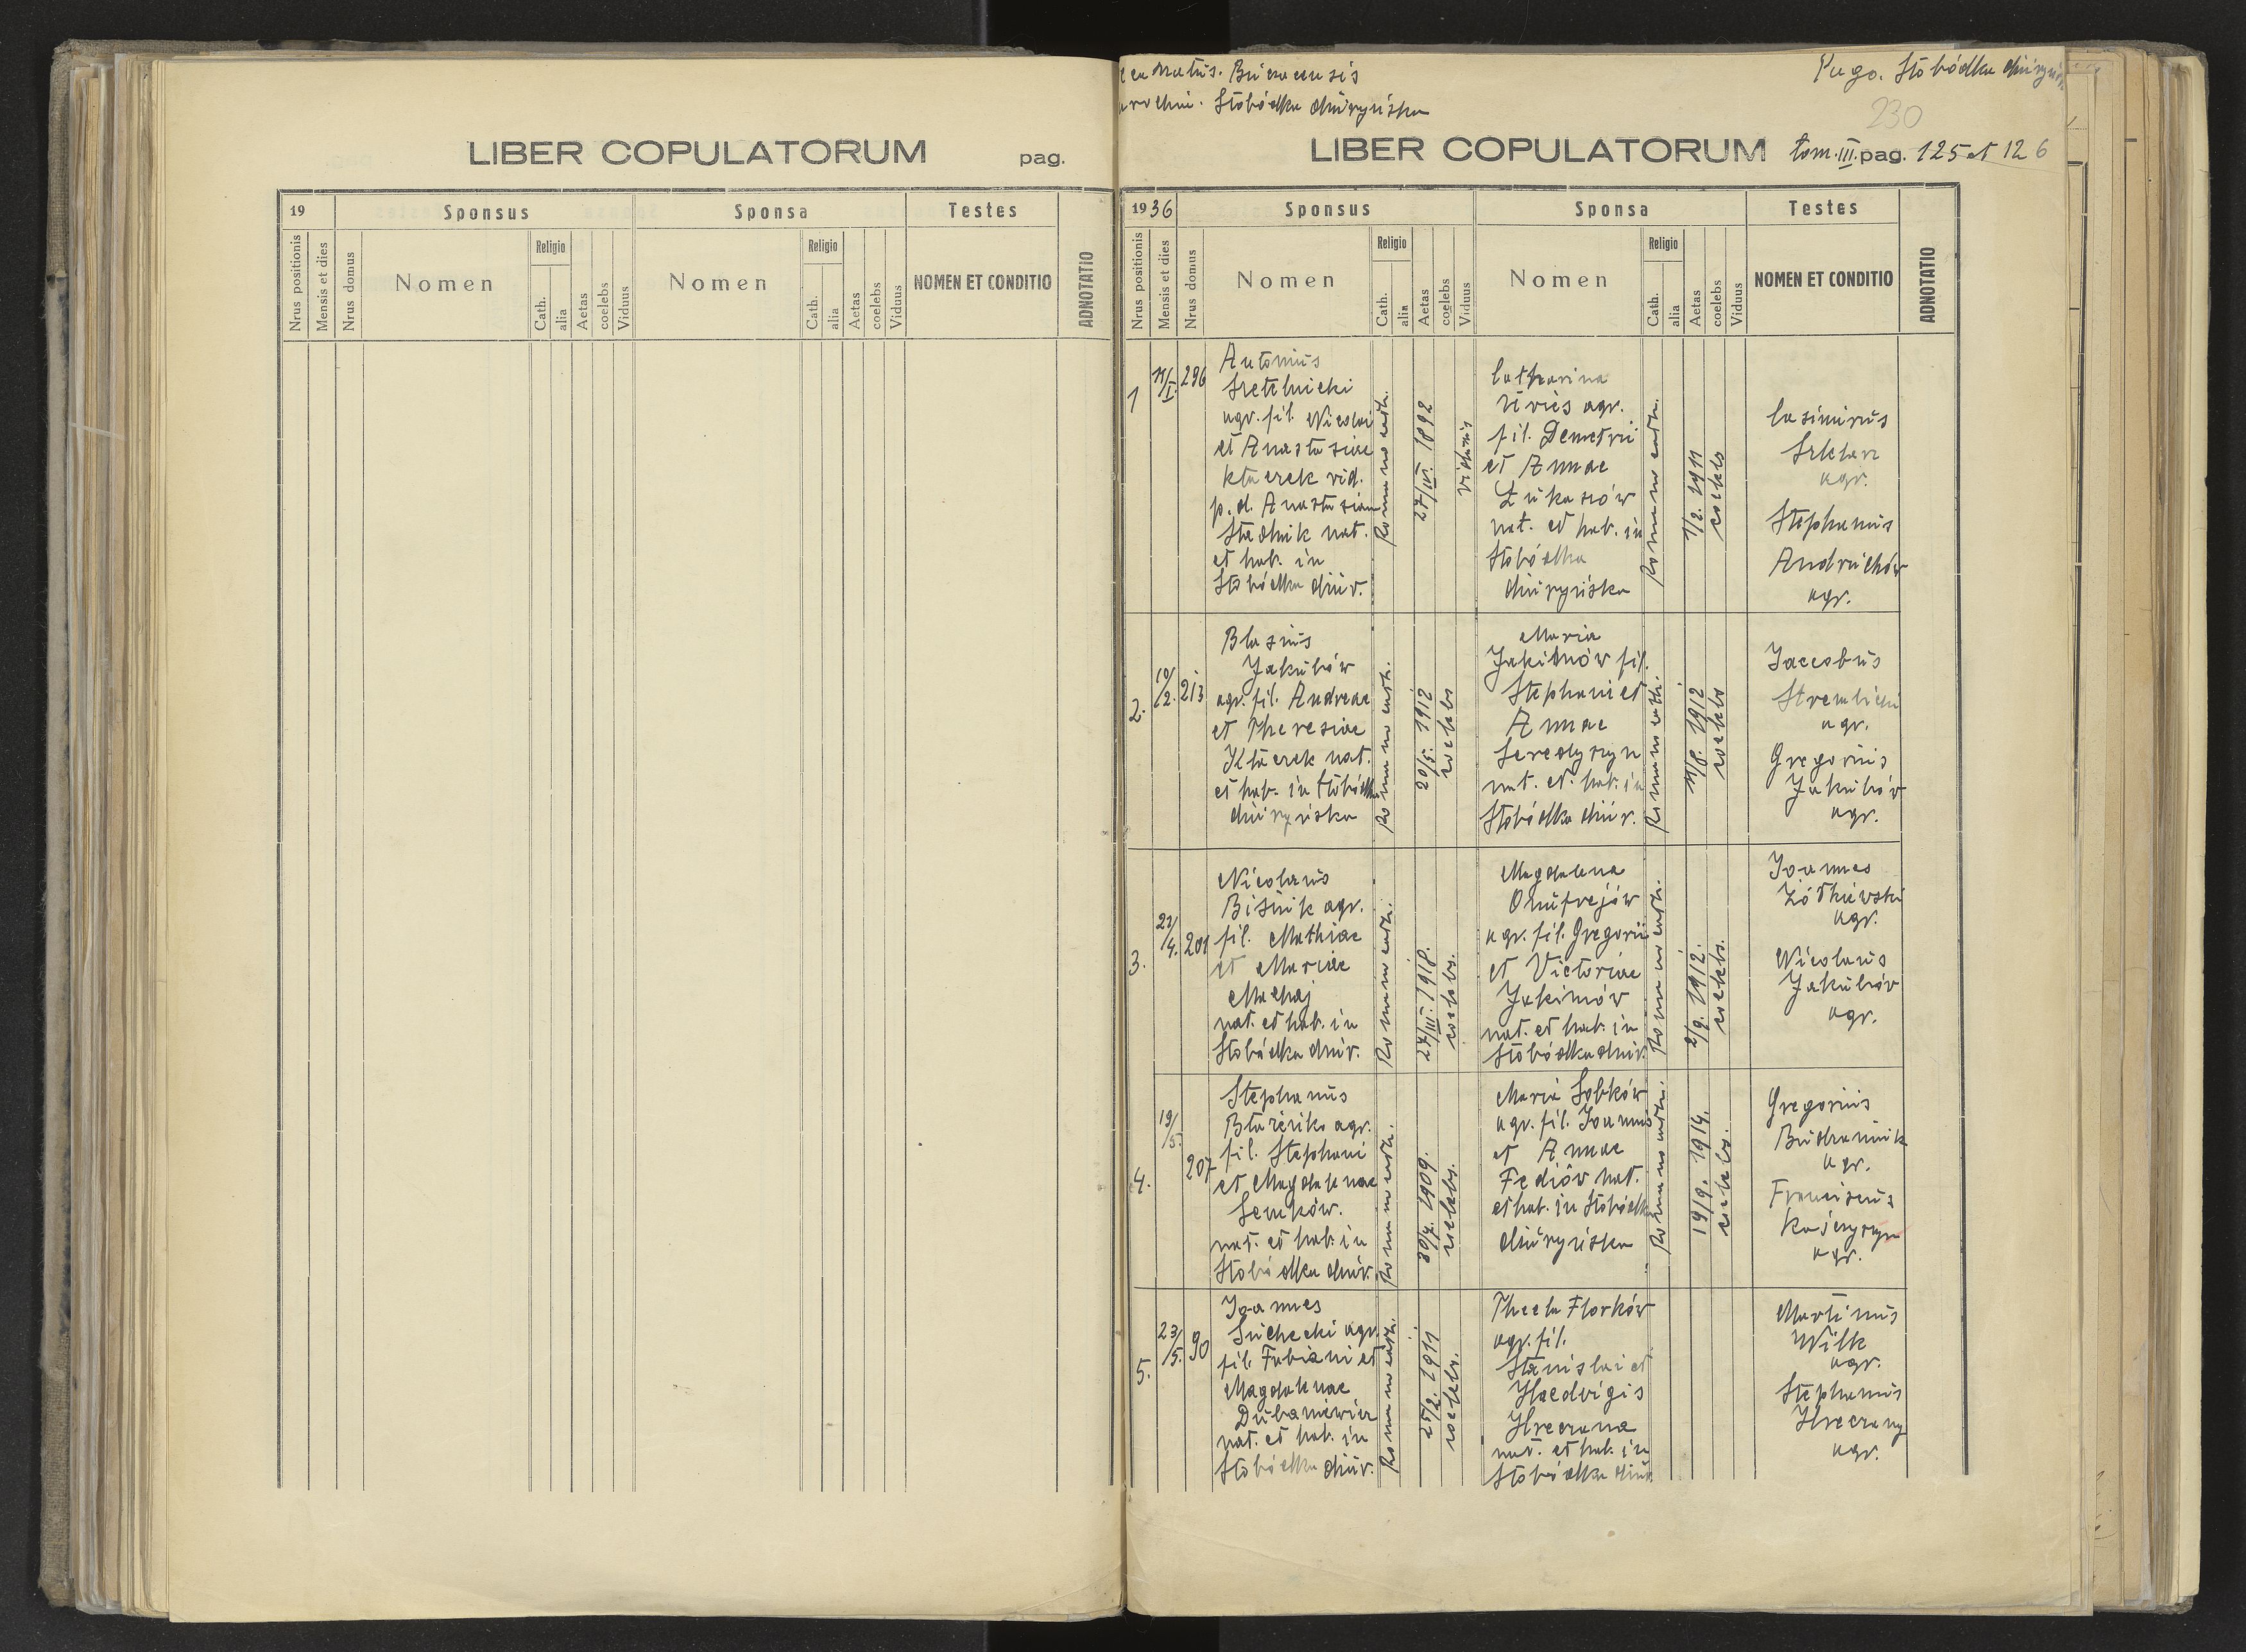 LIBER COPULATORUM pag.
19 Sponsus Sponsa Testes
Nrus positionis Mensis et dies Nrus domus Nomen Religio Cath. alia Aetas coelebs Viduus Nomen Religio Cath. alia Aetas coelebs Viduus NOMEN ET CONDITIO ADNOTATIO
Pago. Słobódka
Słobódka
230
LIBER COPULATORUM tom. III. pag. 125 et 126
1936 Sponsus Sponsa Testes
Nrus positionis Mensis et dies Nrus domus Nomen Religio Cath. alia Aetas coelebs Viduus Nomen Religio Cath. alia Aetas coelebs Viduus NOMEN ET CONDITIO ADNOTATIO
1
11/I.
296
Antonius
agr. fil. Nicolai
et Anastasiae
vid.
p. d. Anastasiam
nat.
et hab. in
Słobódka
Romano cath.
27/IV. 1892
viduus
Catharina
agr.
fil. Demetrii
et Annae
Łukasiów
nat. et hab. in
Słobódka
Romano cath.
1/2. 1911
coelebs
Casimirus
agr.
Stephanus
Andruchów
agr.
2.
10/2.
213
Blasius
Jakubów
agr. fil. Andreae
et Theresiae
nat.
et hab. in Słobódka
Romano cath.
20/5. 1912
coelebs
Maria
Jakimów fil.
Stephani et
Annae
nat. et hab. in
Słobódka
Romano cath.
11/8. 1912
coelebs
Jaccobus
agr.
Gregorius
Jakubów
agr.
3.
22/4.
201
Nicolaus
agr.
fil. Mathiae
et Mariae
nat. et hab. in
Słobódka
Romano cath.
27/III. 1918.
coelebs.
Magdalena
Onufrejów
agr. fil. Gregorii
et Victoriae
Jakimów
nat. et hab. in
Słobódka
Romano cath.
2/9. 1912.
coelebs.
Joannes
Żółkiewski
agr.
Nicolaus
Jakubów
agr.
4.
19/5.
207
Stephanus
agr.
fil. Stephani
et Magdalenae
Senków.
nat. et hab. in
Słobódka
Romano cath.
30/7. 1909.
coelebs.
Maria Sobków
agr. fil. Joannis
et Annae
Fediów nat.
et hab. in Słobódka
Romano cath.
19/9. 1914.
coelebs.
Gregorius
agr.
Franciscus
agr.
5.
23/5.
90
Joannes
Suchecki agr.
fil. Fabiani et
Magdalenae
nat. et hab. in
Słobódka
Romano cath.
25/2. 1911
coelebs.
Thecla Florków
agr. fil.
Stanislai et
Haedvigis
Hreczana
nat. et hab. in
Słobódka
Martinus
Wilk
agr.
Stephanus
Hreczany
agr.